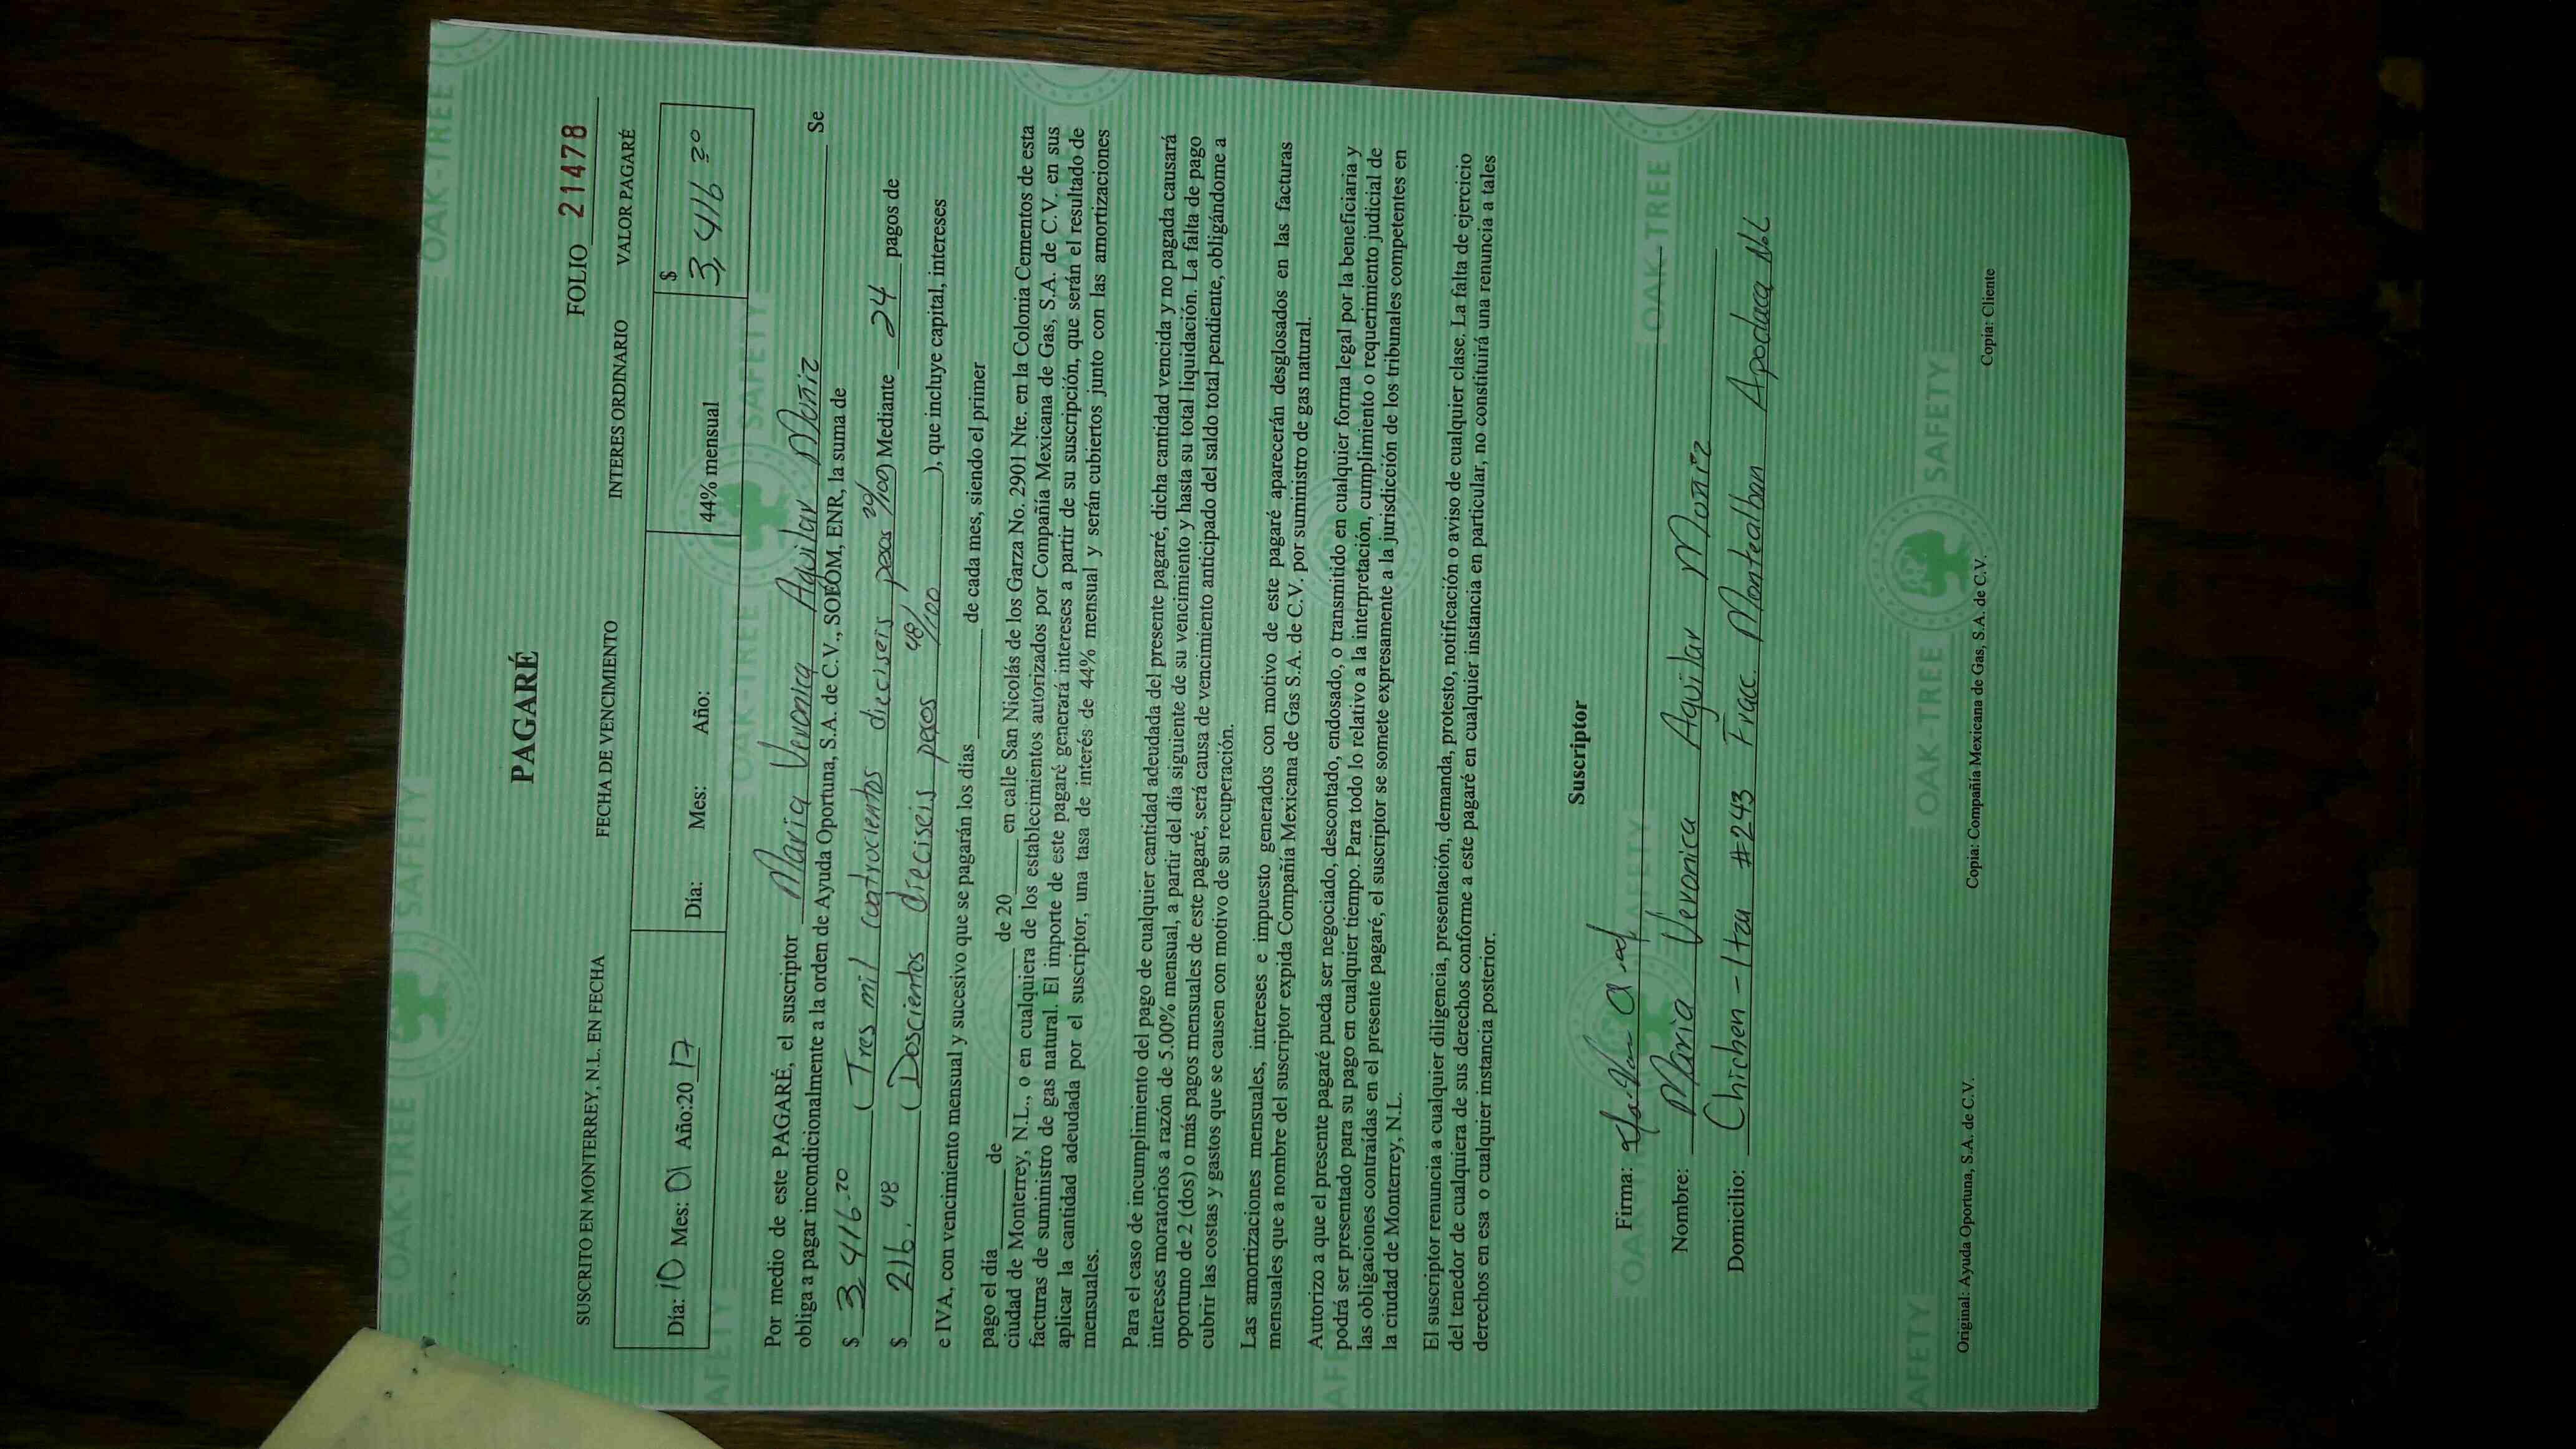 PAGARÉ
FOLIO 21478
SUSCRITO EN MONTERREY, N.L. EN FECHA FECHA DE VENCIMIENTO INTERES ORDINARIO VALOR PAGARÉ
Día: 10 Mes: 01 Año:20 17 Día: Mes: Año: 44% mensual $ 3,416.20
Por medio de este PAGARÉ, el suscriptor Maria Veronica Aguilar Moñiz Se
obliga a pagar incondicionalmente a la orden de Ayuda Oportuna, S.A. de C.V., SOFOM, ENR, la suma de
$ 3,416.20 (Tres mil cuatrocientos dieciseis pesos 20/100) Mediante 24 pagos de
$ 216.48 (Doscientos dieciseis pesos 48/100 ), que incluye capital, intereses
e IVA, con vencimiento mensual y sucesivo que se pagarán los días de cada mes, siendo el primer
pago el día de de 20 en calle San Nicolás de los Garza No. 2901 Nte. en la Colonia Cementos de esta
ciudad de Monterrey, N.L., o en cualquiera de los establecimientos autorizados por Compañía Mexicana de Gas, S.A. de C.V. en sus
facturas de suministro de gas natural. El importe de este pagaré generará intereses a partir de su suscripción, que serán el resultado de
aplicar la cantidad adeudada por el suscriptor, una tasa de interés de 44% mensual y serán cubiertos junto con las amortizaciones
mensuales.
Para el caso de incumplimiento del pago de cualquier cantidad adeudada del presente pagaré, dicha cantidad vencida y no pagada causará
intereses moratorios a razón de 5.00% mensual, a partir del día siguiente de su vencimiento y hasta su total liquidación. La falta de pago
oportuno de 2 (dos) o más pagos mensuales de este pagaré, será causa de vencimiento anticipado del saldo total pendiente, obligándome a
cubrir las costas y gastos que se causen con motivo de su recuperación.
Las amortizaciones mensuales, intereses e impuesto generados con motivo de este pagaré aparecerán desglosados en las facturas
mensuales que a nombre del suscriptor expida Compañía Mexicana de Gas S.A. de C.V. por suministro de gas natural.
Autorizo a que el presente pagaré pueda ser negociado, descontado, endosado, o transmitido en cualquier forma legal por la beneficiaria y
podrá ser presentado para su pago en cualquier tiempo. Para todo lo relativo a la interpretación, cumplimiento o requerimiento judicial de
las obligaciones contraídas en el presente pagaré, el suscriptor se somete expresamente a la jurisdicción de los tribunales competentes en
la ciudad de Monterrey, N.L.
El suscriptor renuncia a cualquier diligencia, presentación, demanda, protesto, notificación o aviso de cualquier clase. La falta de ejercicio
del tenedor de cualquiera de sus derechos conforme a este pagaré en cualquier instancia en particular, no constituirá una renuncia a tales
derechos en esa o cualquier instancia posterior.
Suscriptor
Firma:
Nombre: Maria Veronica Aguilar Moñiz
Domicilio: Chichen-Itza #243 Fracc. Montealban Apodaca N.L
Original: Ayuda Oportuna, S.A. de C.V. Copia: Compañía Mexicana de Gas, S.A. de C.V. Copia: Cliente
OAK-TREE SAFETY